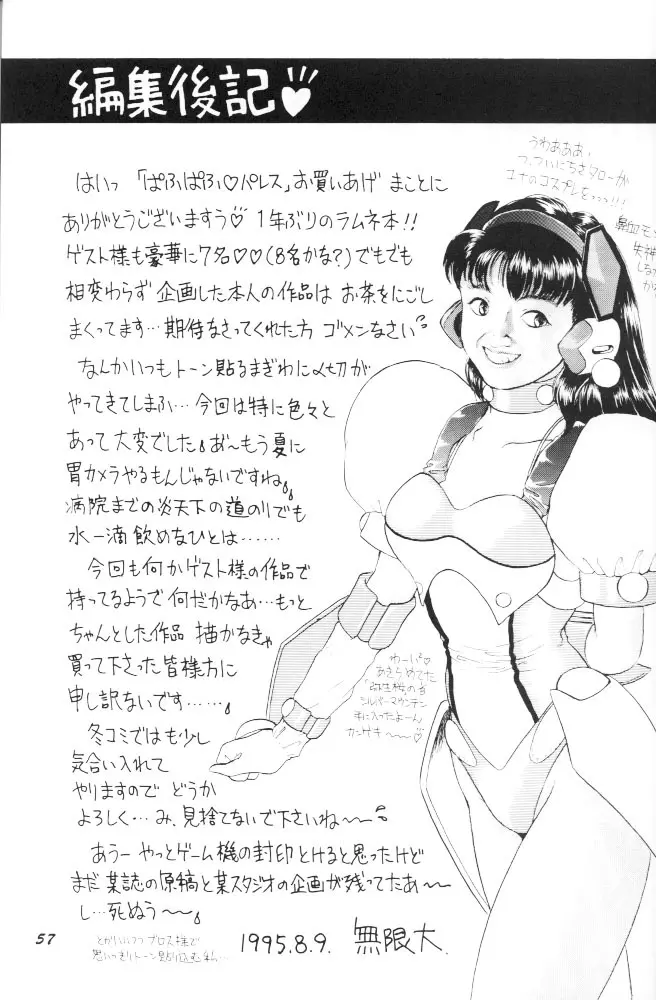 編集後記♡
はいっ 「ぱふぱふ♡パレス」お買いあげ まことに
ありがとうございますう♡ 1年ぶりのラムネ本!!
ゲスト様も豪華に7名♡♡(8名かな?)でもでも
相変わらず 企画した本人の作品は お茶をにごし
まくってます…期待なさってくれた方 ゴメンなさい
なんかいつもトーン貼るまぎわに〆切が
やってきてしまふ…今回は特に色々と
あって大変でした。あ〜もう夏に
胃カメラやるもんじゃないですね。
病院までの炎天下の道のりでも
水一滴飲めなひとは……
今回も何かゲスト様の作品で
持ってるようで何だかなあ…もっと
ちゃんとした作品 描かなきゃ
買って下さった皆様方に
申し訳ないです……。
冬コミではも少し
気合い入れて
やりますので どうか
よろしく…み、見捨てないで下さいね〜〜
あうー やっとゲーム機の封印とけると思ったけど
まだ某誌の原稿と某スタジオの企画が残ってたあ〜
し…死ぬう〜〜。
とかいいつつ プロス様で
思いっきりトーン貼り込む私…
1995.8.9. 無限大.
うわあああ、
つ、ついにちさタローが
ユナのコスプレをっっっ!!!
鼻血モ
失神
わーい♡
あきらめてた
「弥生桜の香
シルバーマウンテン
手に入ったよーん
カンゲキ〜〜♡
57